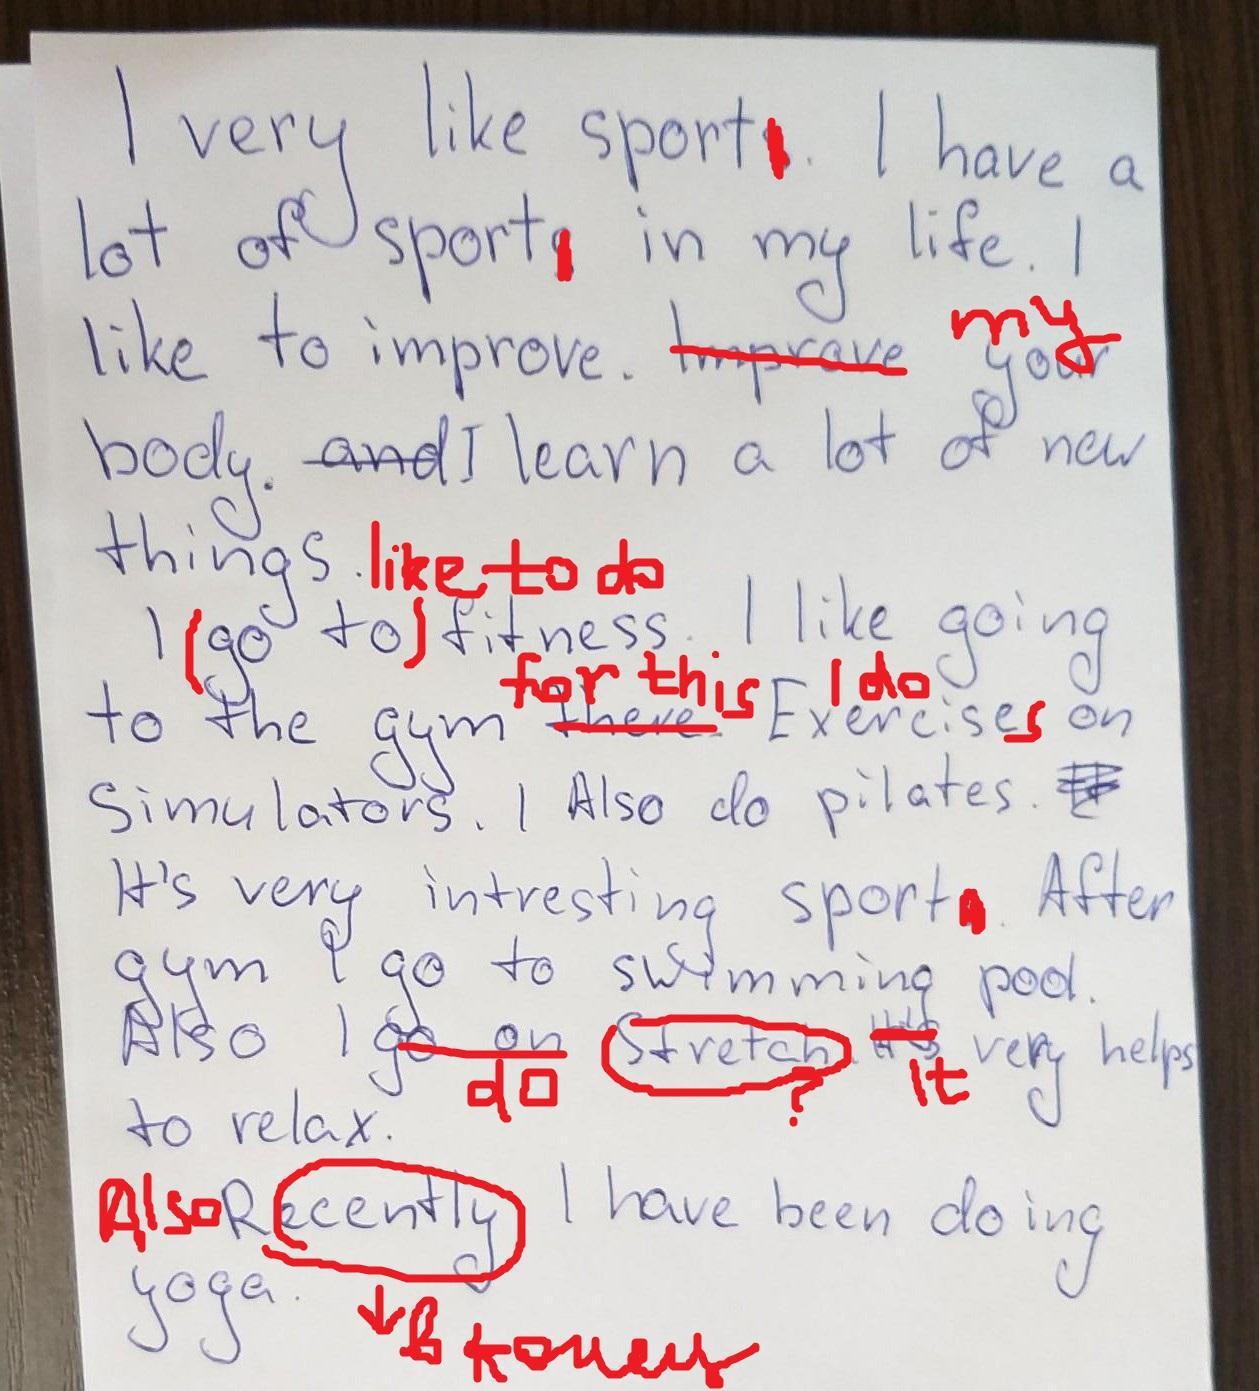 I very like sport. I have a
lot of sport in my life. I
my
like to improve. Improve your
body. and I learn a lot of new
things.
like to do
I (go to) fitness. I like going
for this I do
to the gym there. Exercises on
Simulators. I Also do pilates.
It's very intresting sport. After
gym I go to swimming pool.
Also I go on Stretch. It's very helps
do ? It
to relax.
Also Recently I have been doing
yoga.
↓ в конец